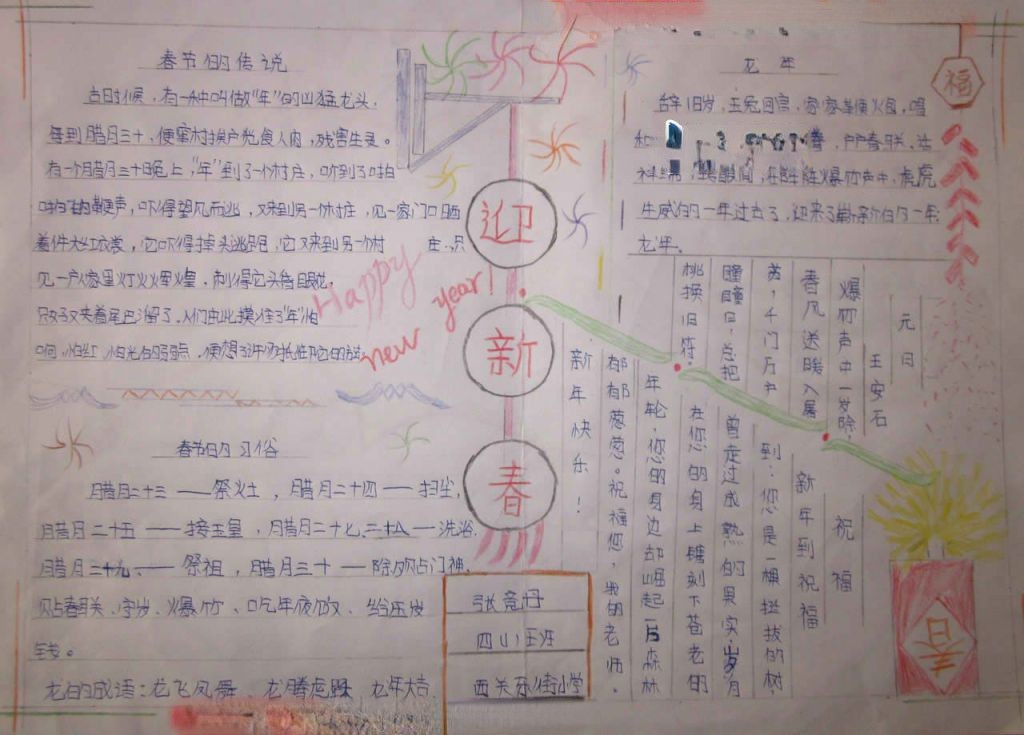 春节的传说
古时候,有一种叫做"年"的凶猛龙头,
每到腊月三十,便窜村挨户觅食人肉,残害生灵。
有一个腊月三十日晚上,"年"到了一个村庄,听到了啪
啪的鞭声,吓得望风而逃,又来到另一个村庄,见一家门口晒
着件大红衣裳,它吓得掉头逃跑,它又来到另一个村庄,只
见一户人家里灯火辉煌,刺得它头昏眼花,
只好又夹着尾巴溜了,人们由此摸住了"年"怕
响,怕红,怕光的弱点,便想了许多抵御它的方法
Happy
new year!
春节的习俗
腊月二十三——祭灶,腊月二十四——扫尘,
腊月二十五——接玉皇,腊月二十七、二十八——洗浴
腊月二十九——祭祖,腊月三十——除夕贴门神、
贴春联、守岁、爆竹、吃年夜饭、给压岁
钱。
龙的成语:龙飞凤舞、龙腾虎跃、龙年大吉
迎
新
春
张竞丹
四(4)班
西关东街小学
龙年
辞旧岁,玉兔回宫,家家
和 春,户户春联,
在阵阵爆竹声中,虎虎
生威的一年过去了,迎来了崭新的一年
龙年。
福
元日
王安石
爆竹声中一岁除,
春风送暖入屠
苏,千门万户
瞳瞳日,总把
桃换旧符。
祝福
新年到祝福
到:您是一棵挺拔的树
曾走过成熟的果实,岁月
在您的身上镌刻下苍老的
年轮,您的身边却崛起一片森林
郁郁葱葱。祝福您,我的老师。
新年快乐!
春